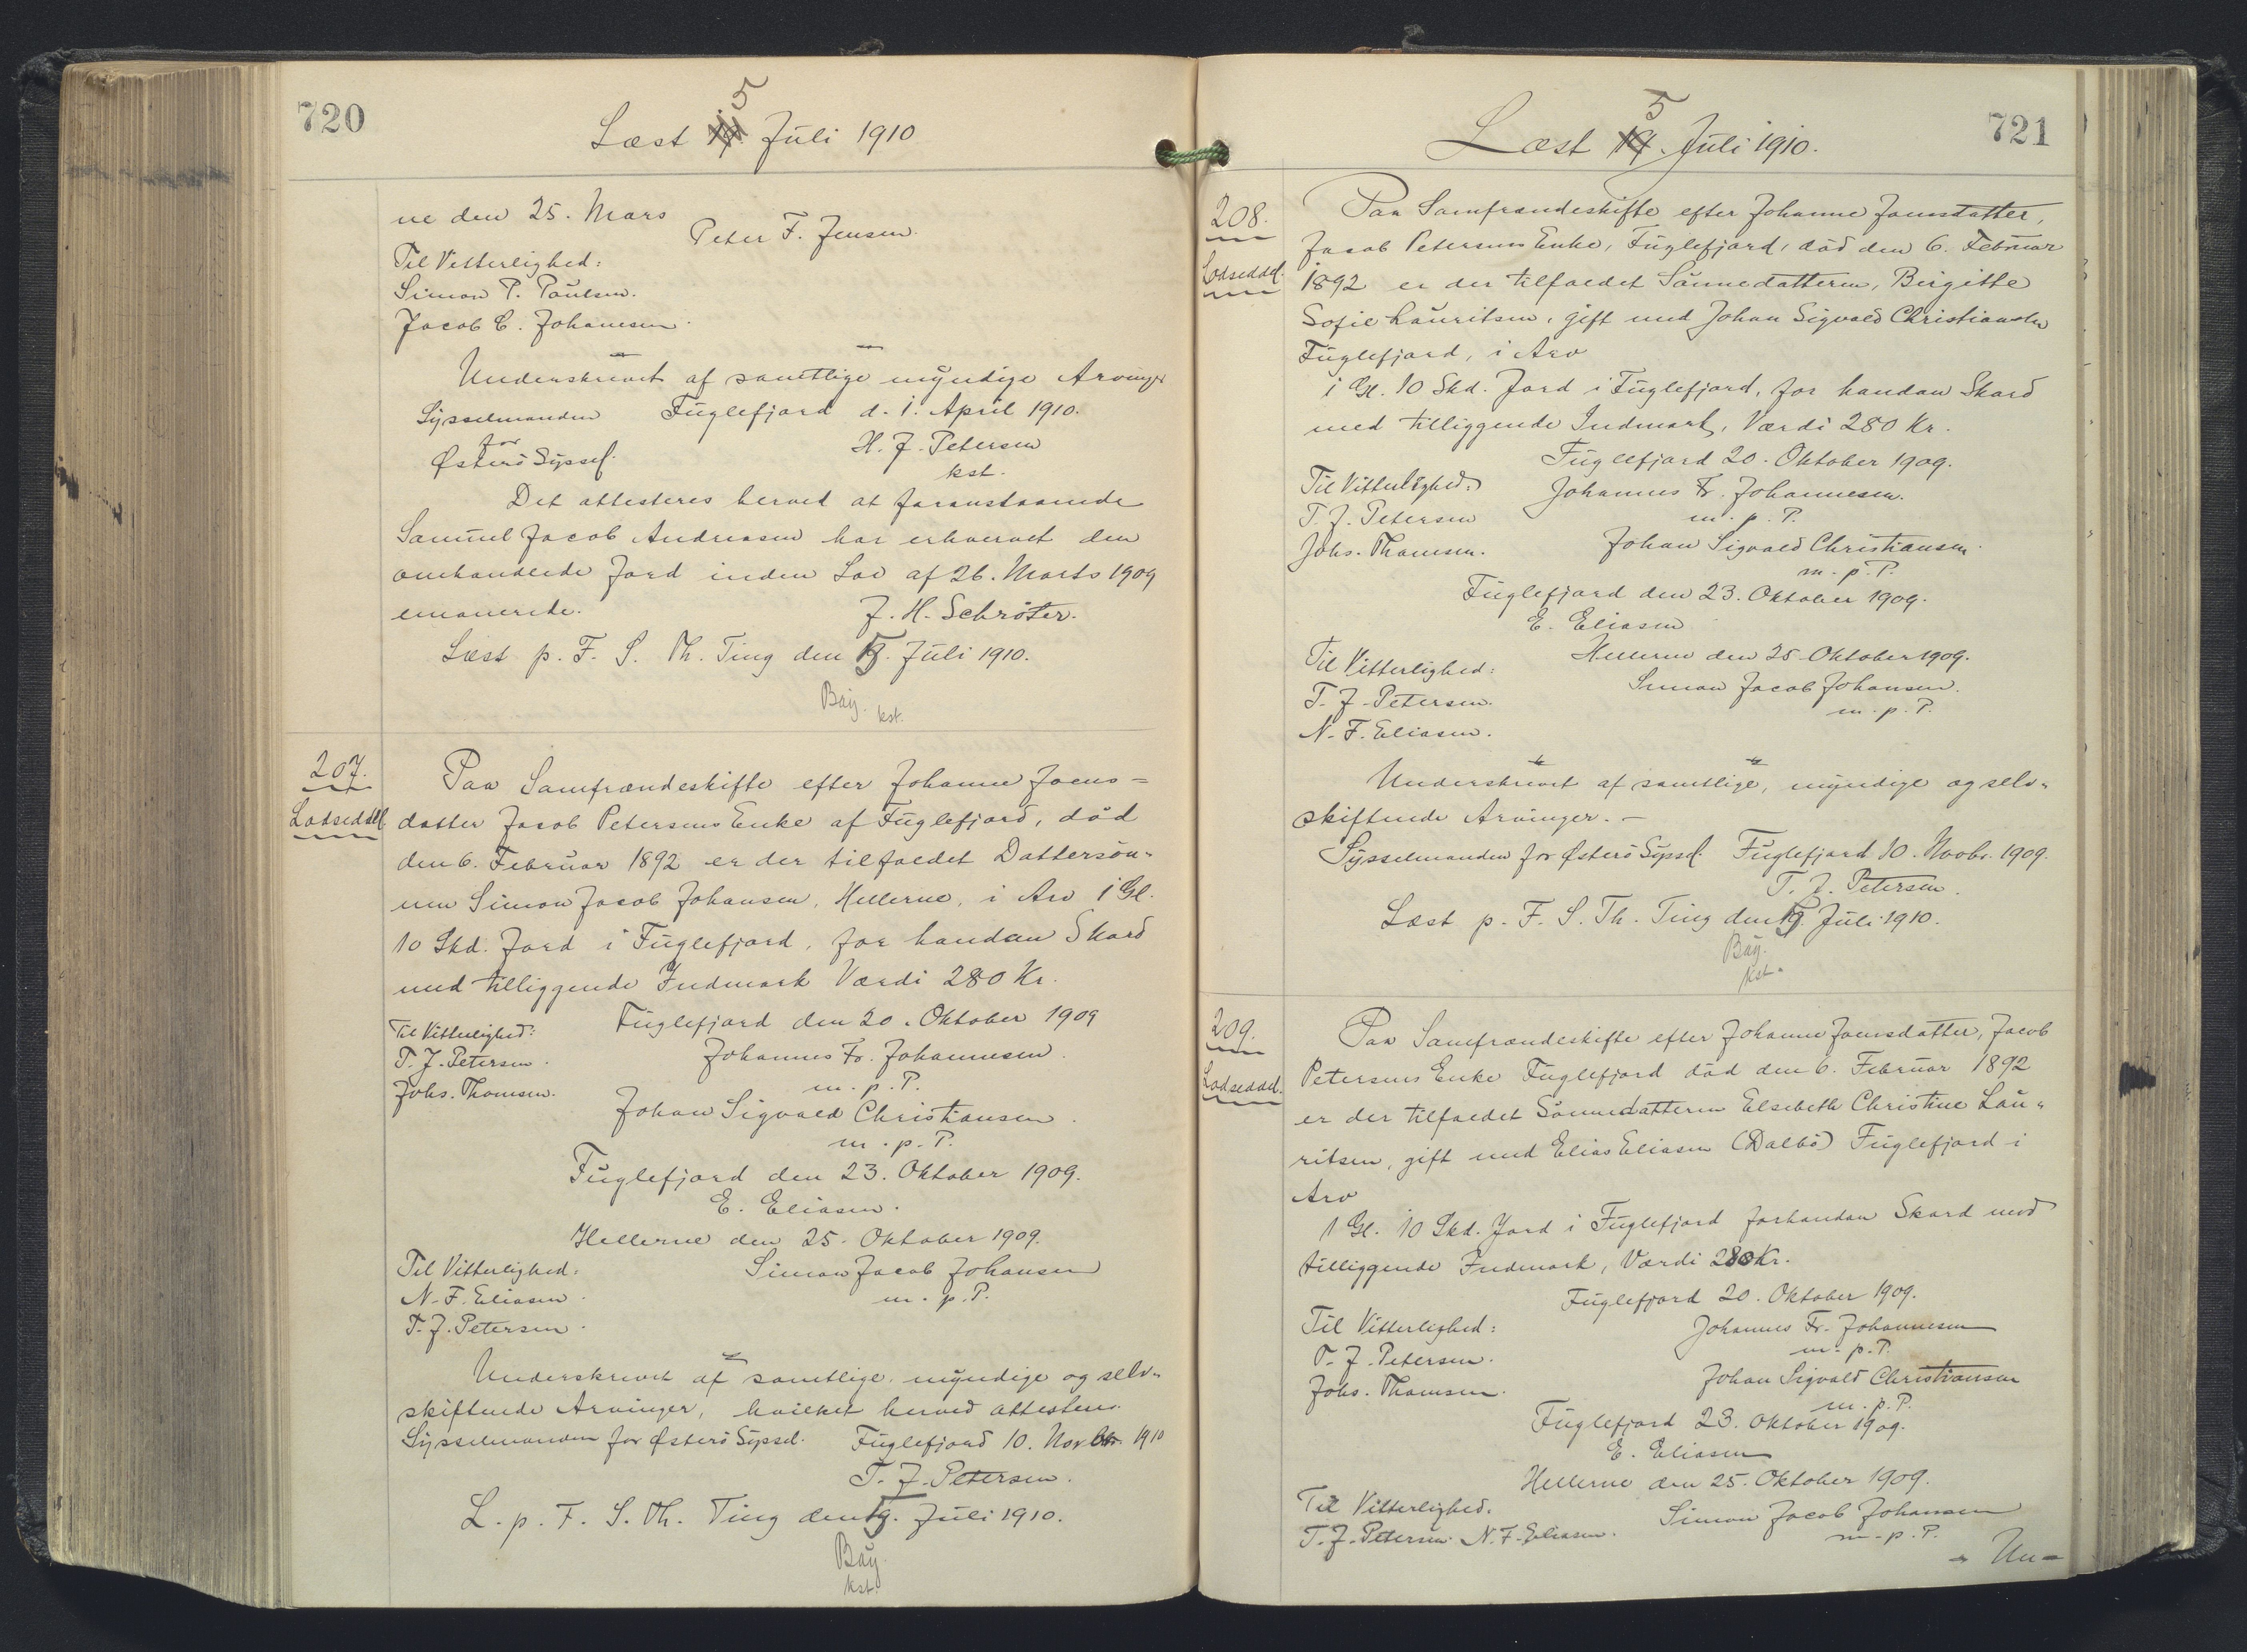 720
Læst 5 Juli 1910
ne den 25. Mars
Peter F. Jensen.
Til Vitterlighed:
Simon P. Poulsen.
Jacob C. Johannesen.
Underskrevet af samtlige myndige Arvinger
Sysselmanden Fuglefjord d. 1. April 1910.
for
Østerö Syssel.
H. J. Petersen
kst.
Det attesteres herved at foranstaaende
Samuel Jacob Andreasen har erhvervet den
omhandlede Jord inden Lov af 26. Marts 1909
emanerede.
J. H. Schröter.
Læst p. F. S. Th. Ting den 5. Juli 1910.
Bay.
kst.
207.
Lodseddel
Paa Samfrændeskifte efter Johanne Joens=
datter Jacob Petersens Enke af Fuglefjord, död
den 6. Februar 1892 er der tilfaldet Dattersön-
nen Simon Jacob Johansen, Hellerne, i Arv 1 Gl.
10 Skd. Jord i Fuglefjord, for handan Skard
med tilliggende Indmark Værdi 280 Kr.
Til Vitterlighed:
Fuglefjord den 20. Oktober 1909
T. J. Petersen.
Johannes Fr. Johannesen.
m. p. P.
Johs. Thomsen.
Johan Sigvald Christiansen.
m. p. P.
Fuglefjord den 23. Oktober 1909.
E. Eliasen.
Hellerne den 25. Oktober 1909.
Til Vitterlighed:
Simon Jacob Johansen
m. p. P.
N. F. Eliasen.
T. J. Petersen.
Underskrevet af samtlige, myndige og selv-
skiftende Arvinger, hvilket herved attesteres.
Sysselmanden for Østerö Syssel. Fuglefjord 10. Novbr. 1910
T. J. Petersen.
L. p. F. S. Th. Ting den 5. Juli 1910.
Bay.
kst.
721
Læst 5. Juli 1910.
208.
Lodseddel.
Paa Samfrændeskifte efter Johanne Joensdatter,
Jacob Petersens Enke, Fuglefjord, död den 6. Februar
1892 er der tilfaldet Sönnedatteren, Birgitte
Sofie Lauritsen, gift med Johan Sigvald Christiansen
Fuglefjord, i Arv
1 Gl. 10 Skd. Jord i Fuglefjord, for handan Skard
med tilliggende Indmark, Værdi 280 Kr.
Fuglefjord 20. Oktober 1909.
Til Vitterlighed:
Johannes Fr. Johannesen.
m. p. P.
T. J. Petersen
Johs. Thomsen.
Johan Sigvald Christiansen.
m. p. P.
Fuglefjord den 23. Oktober 1909.
E. Eliasen
Hellerne den 25. Oktober 1909.
Til Vitterlighed:
Simon Jacob Johansen.
m. p. P.
T. J. Petersen.
N. F. Eliasen.
Underskrevet af samtlige, myndige og selv-
skiftende Arvinger. –
Sysselmanden for Østerö Syssel. Fuglefjord 10. Novbr. 1909.
T. J. Petersen.
Læst p. F. S. Th. Ting den 5. Juli 1910.
Bay.
kst.
209.
Lodseddel.
Paa Samfrændeskifte efter Johanne Joensdatter, Jacob
Petersens Enke Fuglefjord död den 6. Februar 1892
er der tilfaldet Sönnedatteren Elsebeth Christine Lau-
ritsen, gift med Elias Eliasen (Dalbö) Fuglefjord i
Arv
1 Gl. 10 Skd. Jord i Fuglefjord forhandan Skard med
tilliggende Indmark, Værdi 280 Kr.
Fuglefjord 20. Oktober 1909.
Til Vitterlighed:
Johannes Fr. Johannesen
m. p. P.
T. J. Petersen.
Johan Sigvald Christiansen
m. p. P.
Johs. Thomsen.
Fuglefjord 23. Oktober 1909.
E. Eliasen
Hellerne den 25. Oktober 1909.
Til Vitterlighed.
Simon Jacob Johansen
m. p. P.
T. J. Petersen. N. F. Eliasen.
Un=